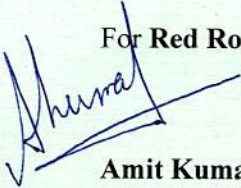 For Red Ro
Amit Kuma